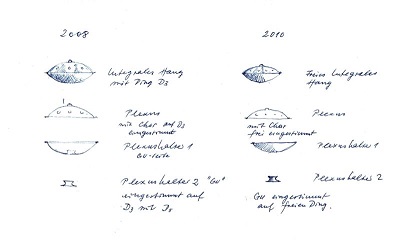 2008
Integrales Hang
mit Ding D3
Plexus
mit Chor auf D3
eingestimmt
Plexushalter 1
Gu-seite
Plexushalter 2 "Gu"
eingestimmt auf
D3 mit
2010
Freies Integrales
Hang
Plexus
mit Chor
frei eingestimmt
Plexushalter 1
Plexushalter 2
Gu eingestimmt
auf freien Ding.